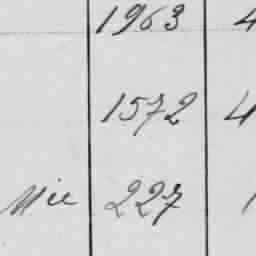 1963 4
1572 4
227 1